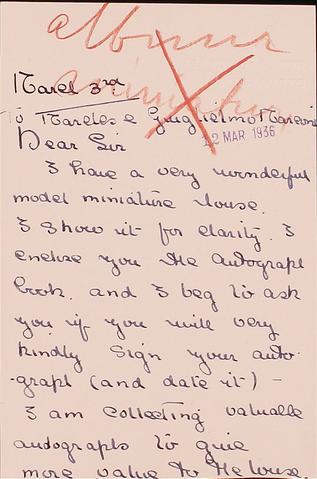 album
miniatur
March 3rd
To Marchese Guglielmo Marconi
12 MAR 1936
Dear Sir
I have a very wonderful
model miniature House.
I show it for charity. I
enclose you the autograph
book. and I beg to ask
you if you will very
kindly sign your auto-
-graph (and date it) -
I am collecting valuable
autographs to give
more value to the house.